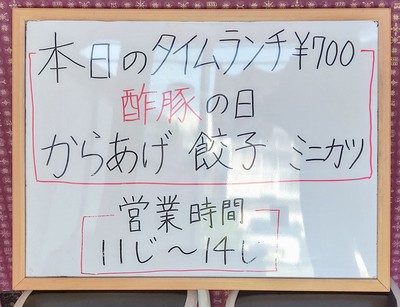 本日のタイムランチ¥700
酢豚の日
からあげ 餃子 ミニカツ
営業時間
11じ～14じ